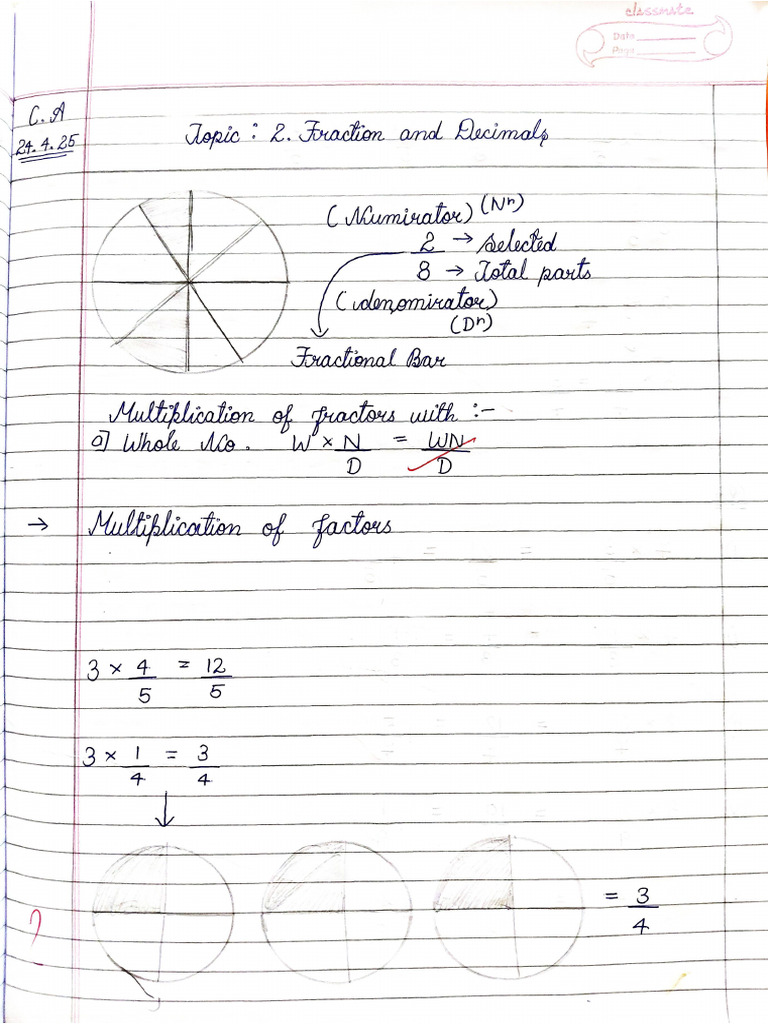 classmate
Date
Page
C.A
24.4.25
Topic : 2. Fraction and Decimals
(Numirator) (Nr)
2 → Selected
8 → Total parts
(denomirator)
(Dr)
Fractional Bar
Multiplication of fractors with :-
a] Whole No. W × N/D = WN/D
→ Multiplication of factors
3 × 4/5 = 12/5
3 × 1/4 = 3/4
= 3/4